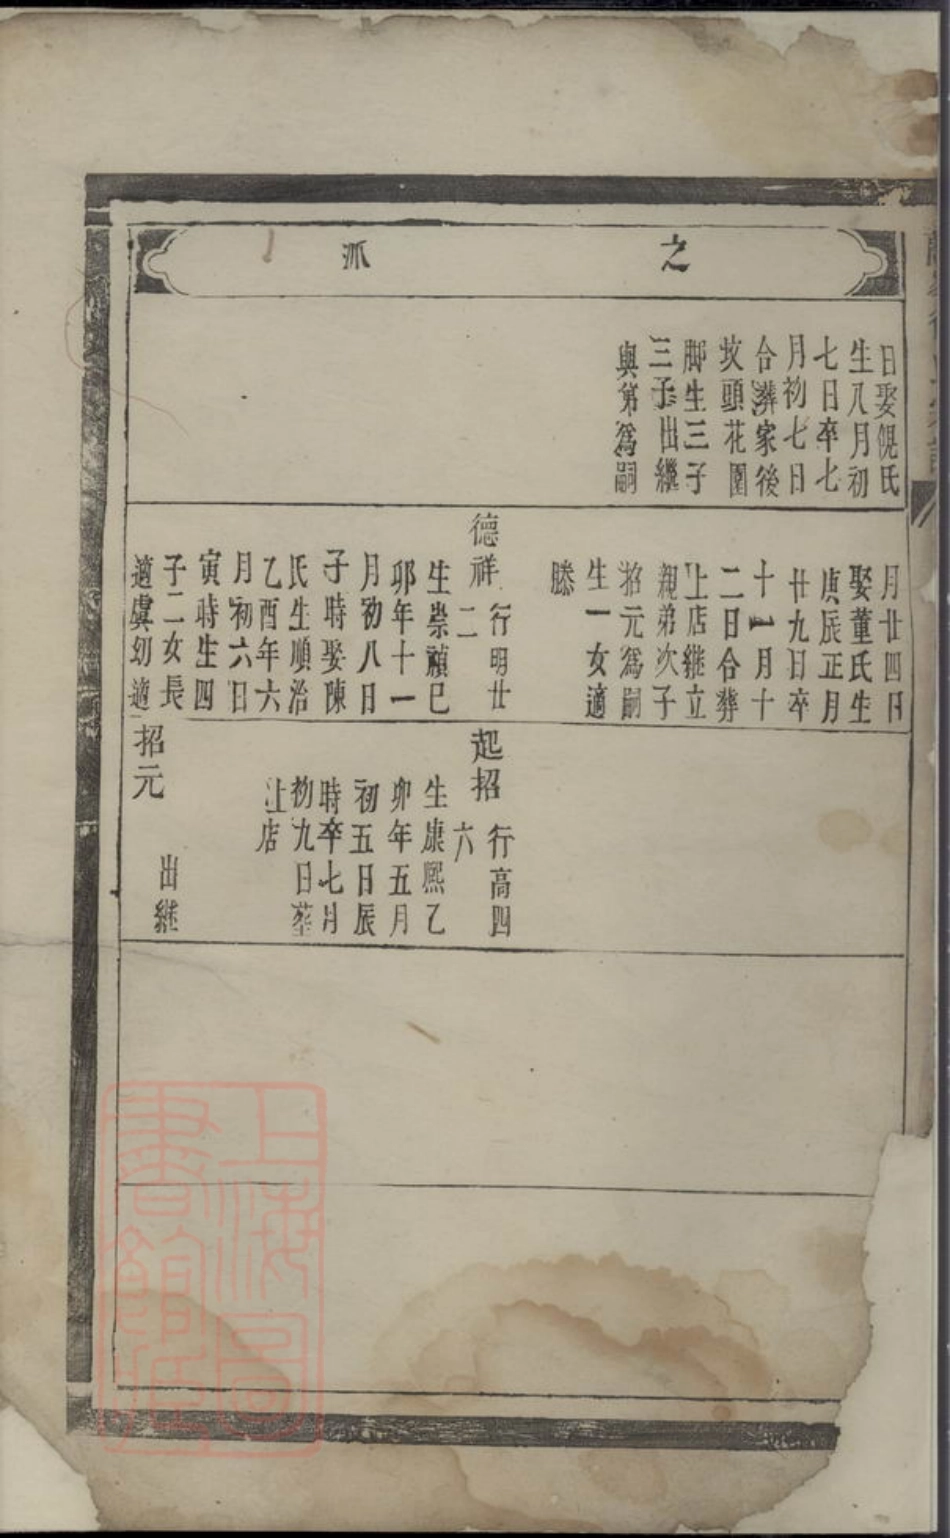 之派
日娶倪氏
生八月初
七日卒七
月初七日
合葬家後
坟頭花園
脚生三子
三子出繼
與第為嗣
月廿四日
娶董氏生
庚辰正月
廿九日卒
十一月十
二日合葬
上店継立
親弟次子
招元為嗣
生一女適
滕
德祥
行明廿
二
生崇禎巳
卯年十一
月初八日
子時娶陳
氏生順治
乙酉年六
月初六日
寅時生四
子二女長
適虞幼適
起招
行高四
六
生康熙乙
卯年五月
初五日辰
時卒七月
初九日塟
上店
招元
出継
上海圖
書館藏